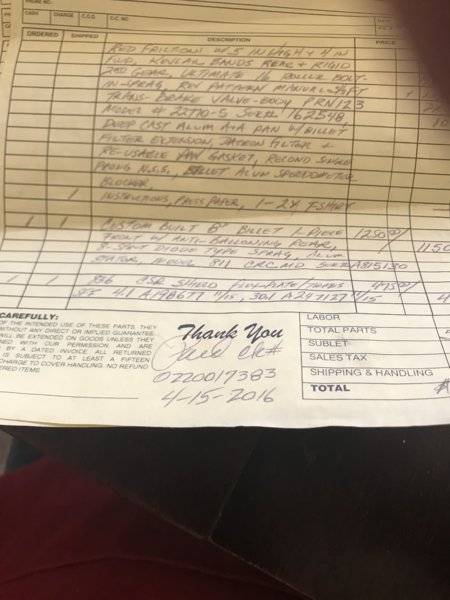 CASH CHARGE C.O.D.
ORDERED SHIPPED DESCRIPTION PRICE
RED FRICTION W/5 IN HIGH & 4 IN
FWD, KEVLAR BANDS REAR & RIGID
2ND GEAR, ULTIMATE 16 ROLLER BOLT-
IN-SPRAG, REV PATTERN MANUAL SHIFT
TRANS-BRAKE VALVE-BODY, PRN123
MODEL # 22710-5 SER# 162548
DEEP CAST ALUM A+A PAN W/BILLET
FILTER EXTENSION, FILTER &
RE-USABLE PAN GASKET, SINGLE
PRONG N.S.S., BILLET ALUM SPEEDOMETER
BLOCKER,
1 INSTRUCTIONS, PRESS PAPER, 1-2X T-SHIRT
1 1 CUSTOM BUILT 8" BILLET 1-PIECE 1250
FRONT W/ ANTI-BALLOONING REAR, 1150
DIODE TYPE SPRAG, ALUM
STATOR, MODEL 811 CRC MID SER# A815130
1 1 CSR SHIELD FLEX-PLATE
SFI 4.1
CAREFULLY:
OF THE INTENDED USE OF THESE PARTS, THEY
WITHOUT ANY DIRECT OR IMPLIED GUARANTEE.
WILL BE EXTENDED ON GOODS UNLESS THEY
NED WITH OUR PERMISSION AND ARE
BY A DATED INVOICE. ALL RETURNED
IS SUBJECT TO AT LEAST A FIFTEEN
CHARGE TO COVER HANDLING. NO REFUND
ERED ITEMS.
Thank You
Paid Ck#
0220017383
4-15-2016
LABOR
TOTAL PARTS
SUBLET
SALES TAX
SHIPPING & HANDLING
TOTAL $